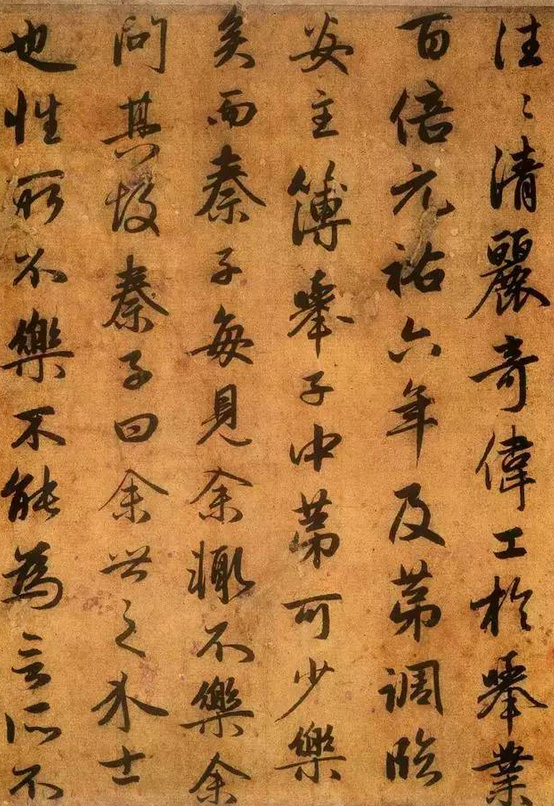 往々清麗奇偉工於舉業
百倍元祐六年及第調臨
安主簿舉子中第可少樂
矣而秦子每見余輙不樂余
問其故秦子曰余世之介士
也性所不樂不能為言所不